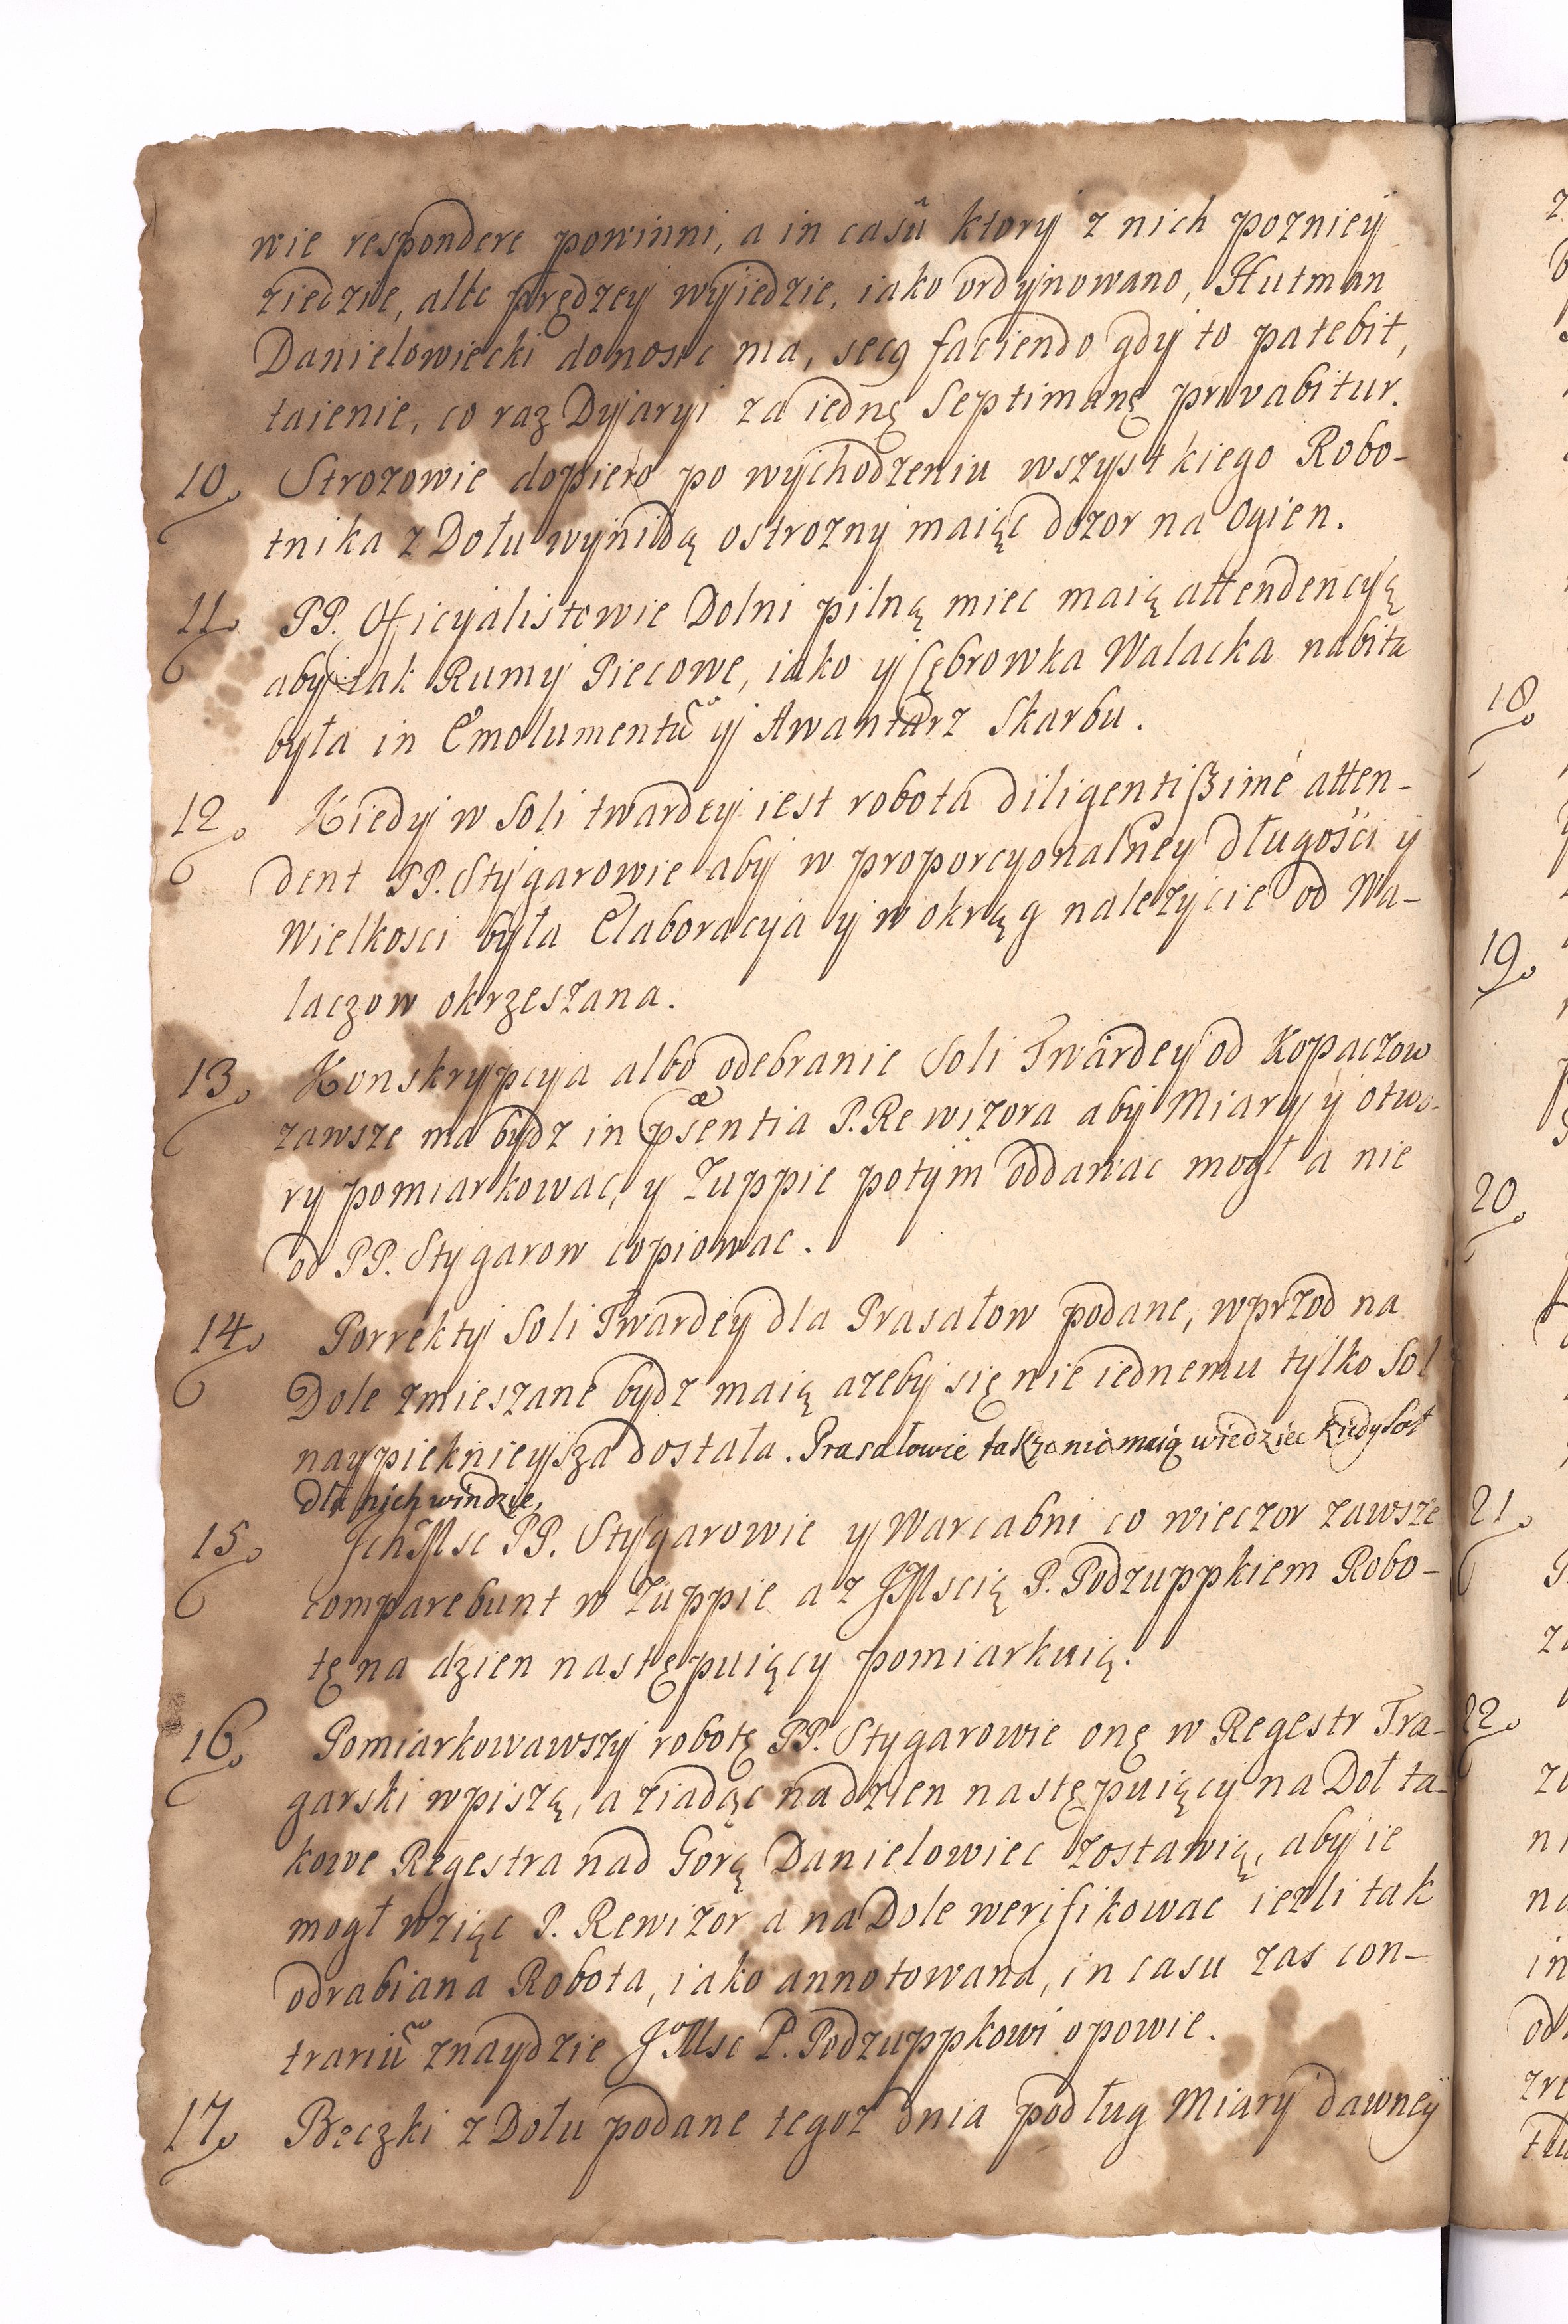 wie respondere powinni, a in casû ktory z nich pozniey
ziedzie, albo prędzey wyiedzie, iako ordynowano, Hutman
Danielowiecki donosic ma, secq faciendo gdy to patebit,
taienie, co raz Dyaryi za iednę Septimanę privabitur.
10. Strozowie dopiero po wychodzeniu wszystkiego Robo-
tnika z Dołu wynidą ostrozny maiąc dozor na Ogien.
11. PP. Oficyalistowie Dolni pilną miec maią attendencyą
aby tak Rumy Piecowe, iako y Cębrowka Walacka nabita
była in Emolumentũ y Awantarz Skarbu.
12. Kiedy w Soli twardey iest robota diligentißime atten-
dent PP. Stygarowie aby w proporcyonalney długości y
Wielkosci była Elaboracyia y w okrąg nalezycie od Wa-
laczow okrzeszana.
13. Konskrypcya albo odebranie Soli Twardey od Kopaczow
zawsze ma bydz in psæntia P. Rewizora aby Miary y otwo-
ry pomiarkowac, y Zuppie potym oddawac mogł a nie
od PP. Stygarow copiowac.
14. Porrekty Soli Twardey dla Prasałow podane, wprzod na
Dole zmieszane bydz maią azeby się nie iednemu tylko Sol
naypieknieysza dostała. Prasałowie takze nie maią wiedziec kiedy Sol
dla nich windzie,
15. JchMsc PP. Stygarowie y Warcabni co wieczor zawsze
comparebunt w Zuppie a z JMscią P. Podzuppkiem Robo-
tę na dzien następuiący pomiarkuią.
16. Pomiarkowawszy robotę PP. Stygarowie onę w Regestr Tra-
garski wpiszą, a ziadąc na dzien następuiący na Doł ta-
kowe Regestra nad Górą Danielowiec zostawią, aby ie
mogł wziąc P. Rewizor a na Dole weryfikowac iezli tak
odrabiana Robota, iako annotowana, in casu zas con-
trariũ znaydzie JMsc P. Podzuppkowi opowie.
17. Beczki z Dołu podane tegoz dnia podług Miary dawney
18.
19.
20.
21.
22.